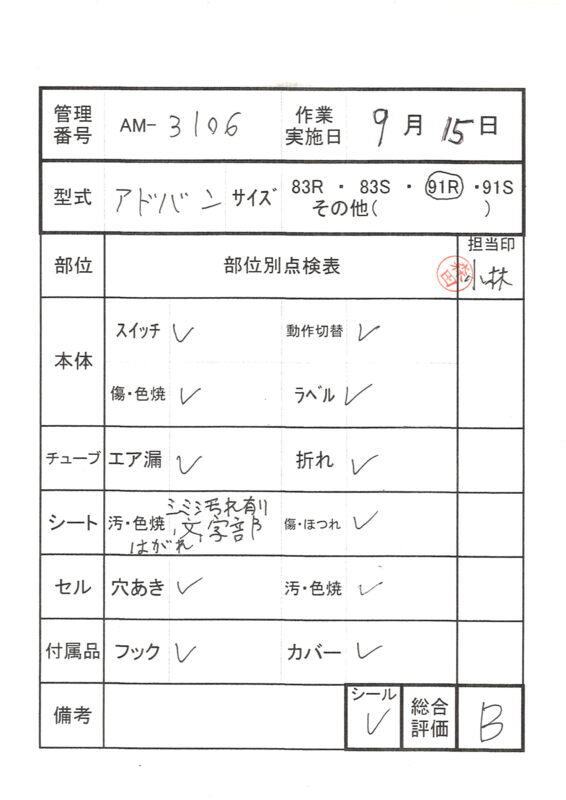 管理番号 AM-3106 作業実施日 9月15日
型式 アドバン サイズ 83R ・ 83S ・ 91R ・91S
その他( )
部位 部位別点検表 担当印
小林
本体 スイッチ ✓ 動作切替 ✓
傷・色焼 ✓ ラベル ✓
チューブ エア漏 ✓ 折れ ✓
シート 汚・色焼 シミ汚れ有り 文字部 はがれ 傷・ほつれ ✓
セル 穴あき ✓ 汚・色焼 ✓
付属品 フック ✓ カバー ✓
備考 シール ✓ 総合評価 B